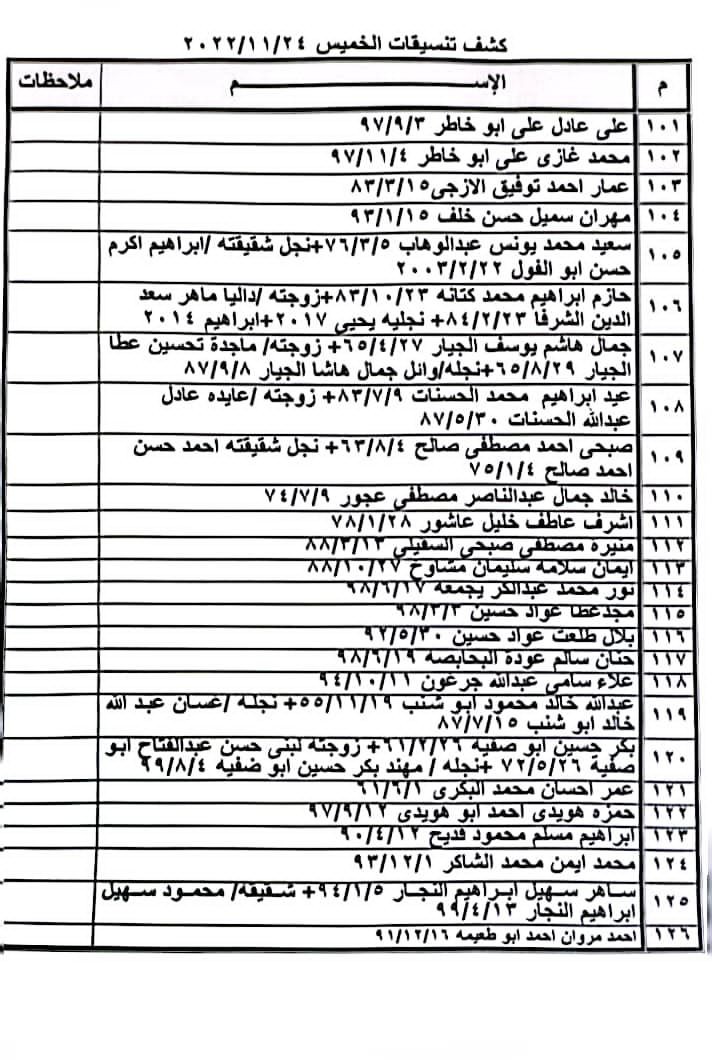 كشف تنسيقات الخميس ٢٠٢٢/١١/٢٤
م الإســـــــــم ملاحظات
١٠١ على عادل على ابو خاطر ٩٧/٩/٣
١٠٢ محمد غازى على ابو خاطر ٩٧/١١/٤
١٠٣ عمار احمد توفيق الازجى٨٣/٣/١٥
١٠٤ مهران سميل حسن خلف ٩٣/١/١٥
١٠٥ سعيد محمد يونس عبدالوهاب ٧٦/٣/٥+نجل شقيقته /ابراهيم اكرم
حسن ابو الفول ٢٠٠٣/٢/٢٢
١٠٦ حازم ابراهيم محمد كتانه ٨٣/١٠/٢٣+زوجته /داليا ماهر سعد
الدين الشرفا ٨٤/٢/٢٣+ نجليه يحيى ٢٠١٧+ابراهيم ٢٠١٤
١٠٧ جمال هاشم يوسف الجيار ٦٥/٤/٢٧+ زوجته/ ماجدة تحسين عطا
الجيار ٦٥/٨/٢٩+نجله/وائل جمال هاشا الجيار ٨٧/٩/٨
١٠٨ عيد ابراهيم محمد الحسنات ٨٣/٧/٩+ زوجته /عايده عادل
عبدالله الحسنات ٨٧/٥/٣٠
١٠٩ صبحى احمد مصطفى صالح ٦٣/٨/٤+ نجل شقيقته احمد حسن
احمد صالح ٧٥/١/٤
١١٠ خالد جمال عبدالناصر مصطفى عجور ٧٤/٧/٩
١١١ اشرف عاطف خليل عاشور ٧٨/١/٢٨
١١٢ منيرة مصطفى صبحى السفيلى ٨٨/٣/١٣
١١٣ ايمان سلامه سليمان مشاوخ ٨٨/١٠/٢٧
١١٤ نور محمد عبدالكر يجمعه ٩٨/٦/١٧
١١٥ مجدعطا عواد حسين ٩٨/٣/٣
١١٦ بلال طلعت عواد حسين ٩٢/٥/٣٠
١١٧ حنان سالم عودة البحابصه ٩٨/٦/١٩
١١٨ علاء سامى عبدالله جرعون ٩٤/١٠/١١
١١٩ عبدالله خالد محمود ابو شنب ٥٥/١١/١٩+ نجله /غسان عبد الله
خالد ابو شنب ٨٧/٧/١٥
١٢٠ بكر حسين ابو صفيه ٦١/٢/٢٦+ زوجته لبنى حسن عبدالفتاح ابو
صفية ٧٢/٥/٢٦ +نجله / مهند بكر حسين ابو ضفيه ٩٩/٨/٤
١٢١ عمر احسان محمد البكرى ٦١/٦/١
١٢٢ حمزه هويدى احمد ابو هويدى ٩٧/٩/١٢
١٢٣ ابراهيم مسلم محمود قديح ٩٠/٤/١٢
١٢٤ محمد ايمن محمد الشاكر ٩٣/١٢/١
١٢٥ ساهر سهيل ابراهيم النجار ٩٤/١/٥+ شقيقه/ محمود سهيل
ابراهيم النجار ٩٩/٤/١٣
١٢٦ احمد مروان احمد ابو طعيمه ٩١/١٢/١٦